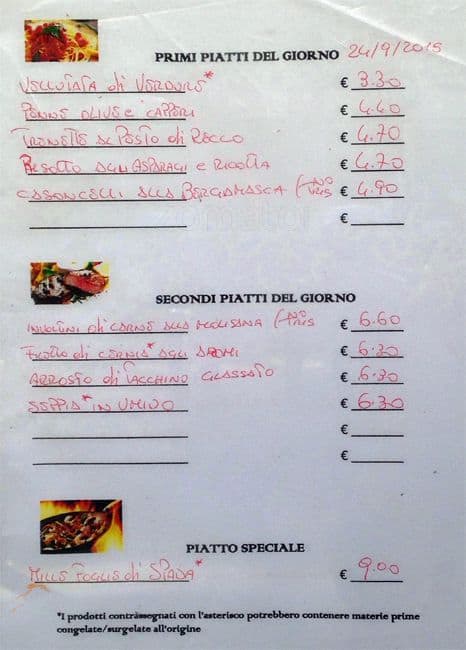 PRIMI PIATTI DEL GIORNO 24/9/2015
VELLUTATA di VERDURE* € 3.30
PENNE OLIVE e CAPPERI € 4.40
TROFIETTE AL PESTO di RUCOLA € 4.70
RISOTTO AGLI ASPARAGI e RICOTTA € 4.70
CASONCELLI ALLA BERGAMASCA € 4.90
€
SECONDI PIATTI DEL GIORNO
INVOLTINI di CARNE ALLA € 6.60
FILETTO di CERNIA* AGLI AROMI € 6.30
ARROSTO di TACCHINO GLASSATO € 6.30
SEPPIA* IN UMIDO € 6.30
€
€
PIATTO SPECIALE
MILLE FOGLIE di SPADA* € 9.00
*I prodotti contrassegnati con l'asterisco potrebbero contenere materie prime
congelate/surgelate all'origine